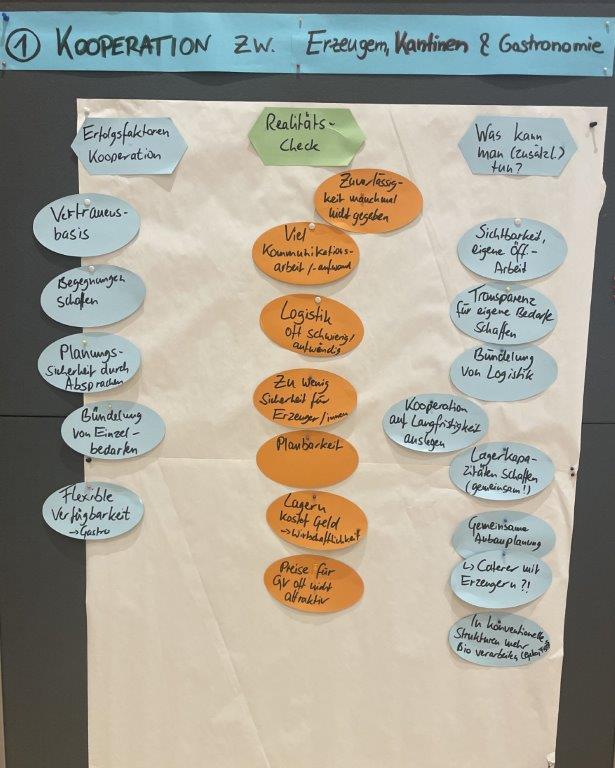 ① KOOPERATION ZW. Erzeugern, Kantinen & Gastronomie
Erfolgsfaktoren
Kooperation
Vertrauens-
basis
Begegnungen
schaffen
Planungs-
sicherheit durch
Absprachen
Bündelung
von Einzel-
bedarfen
Flexible
Verfügbarkeit
→ Gastro
Realitäts-
check
Zuverlässig-
keit manchmal
nicht gegeben
Viel
Kommunikations-
arbeit /-aufwand
Logistik
oft schwierig/
aufwändig
Zu wenig
Sicherheit für
Erzeuger/innen
Planbarkeit
Lagern
kostet Geld
→ Wirtschaftlichkeit
Preise für
GV oft nicht
attraktiv
Was kann
man (zusätzl.)
tun?
Sichtbarkeit,
eigene Öff.-
Arbeit
Transparenz
für eigene Bedarfe
schaffen
Bündelung
von Logistik
Kooperation
auf Langfristigkeit
auslegen
Lagerkapa-
zitäten schaffen
(gemeinsam!)
Gemeinsame
Anbauplanung
↳ Caterer mit
Erzeugern?!
In konventionelle
Strukturen mehr
Bio verarbeiten